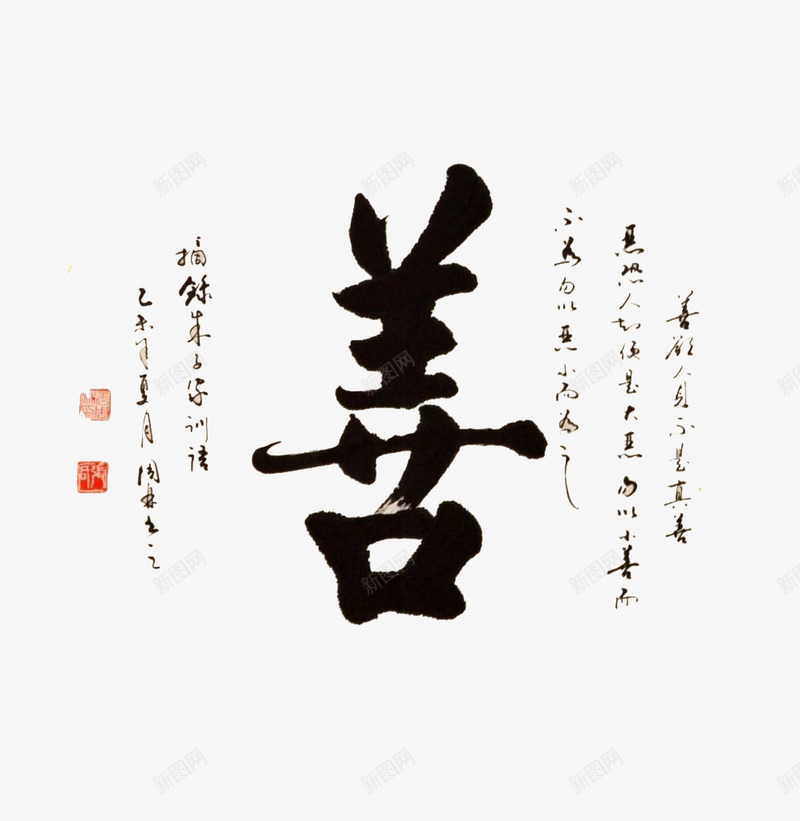 善欲人見不是真善
惡恐人知便是大惡勿以小善而
不為勿以惡小而為之
善
摘錄朱子家訓語
乙未年夏月周林書之
新图网